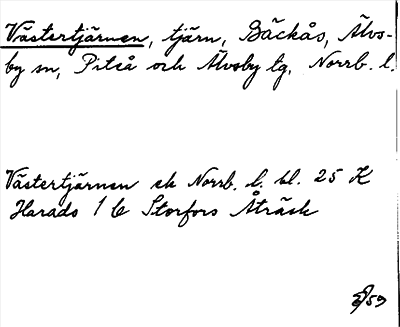 Västertjärnen, tjärn, Bäckås, Älvs-
by sn, Piteå och Älvsby tg, Norrb. l.
Västertjärnen ek Norrb. l. bl. 25 K
Harads 1 b Storfors Åträsk
/59